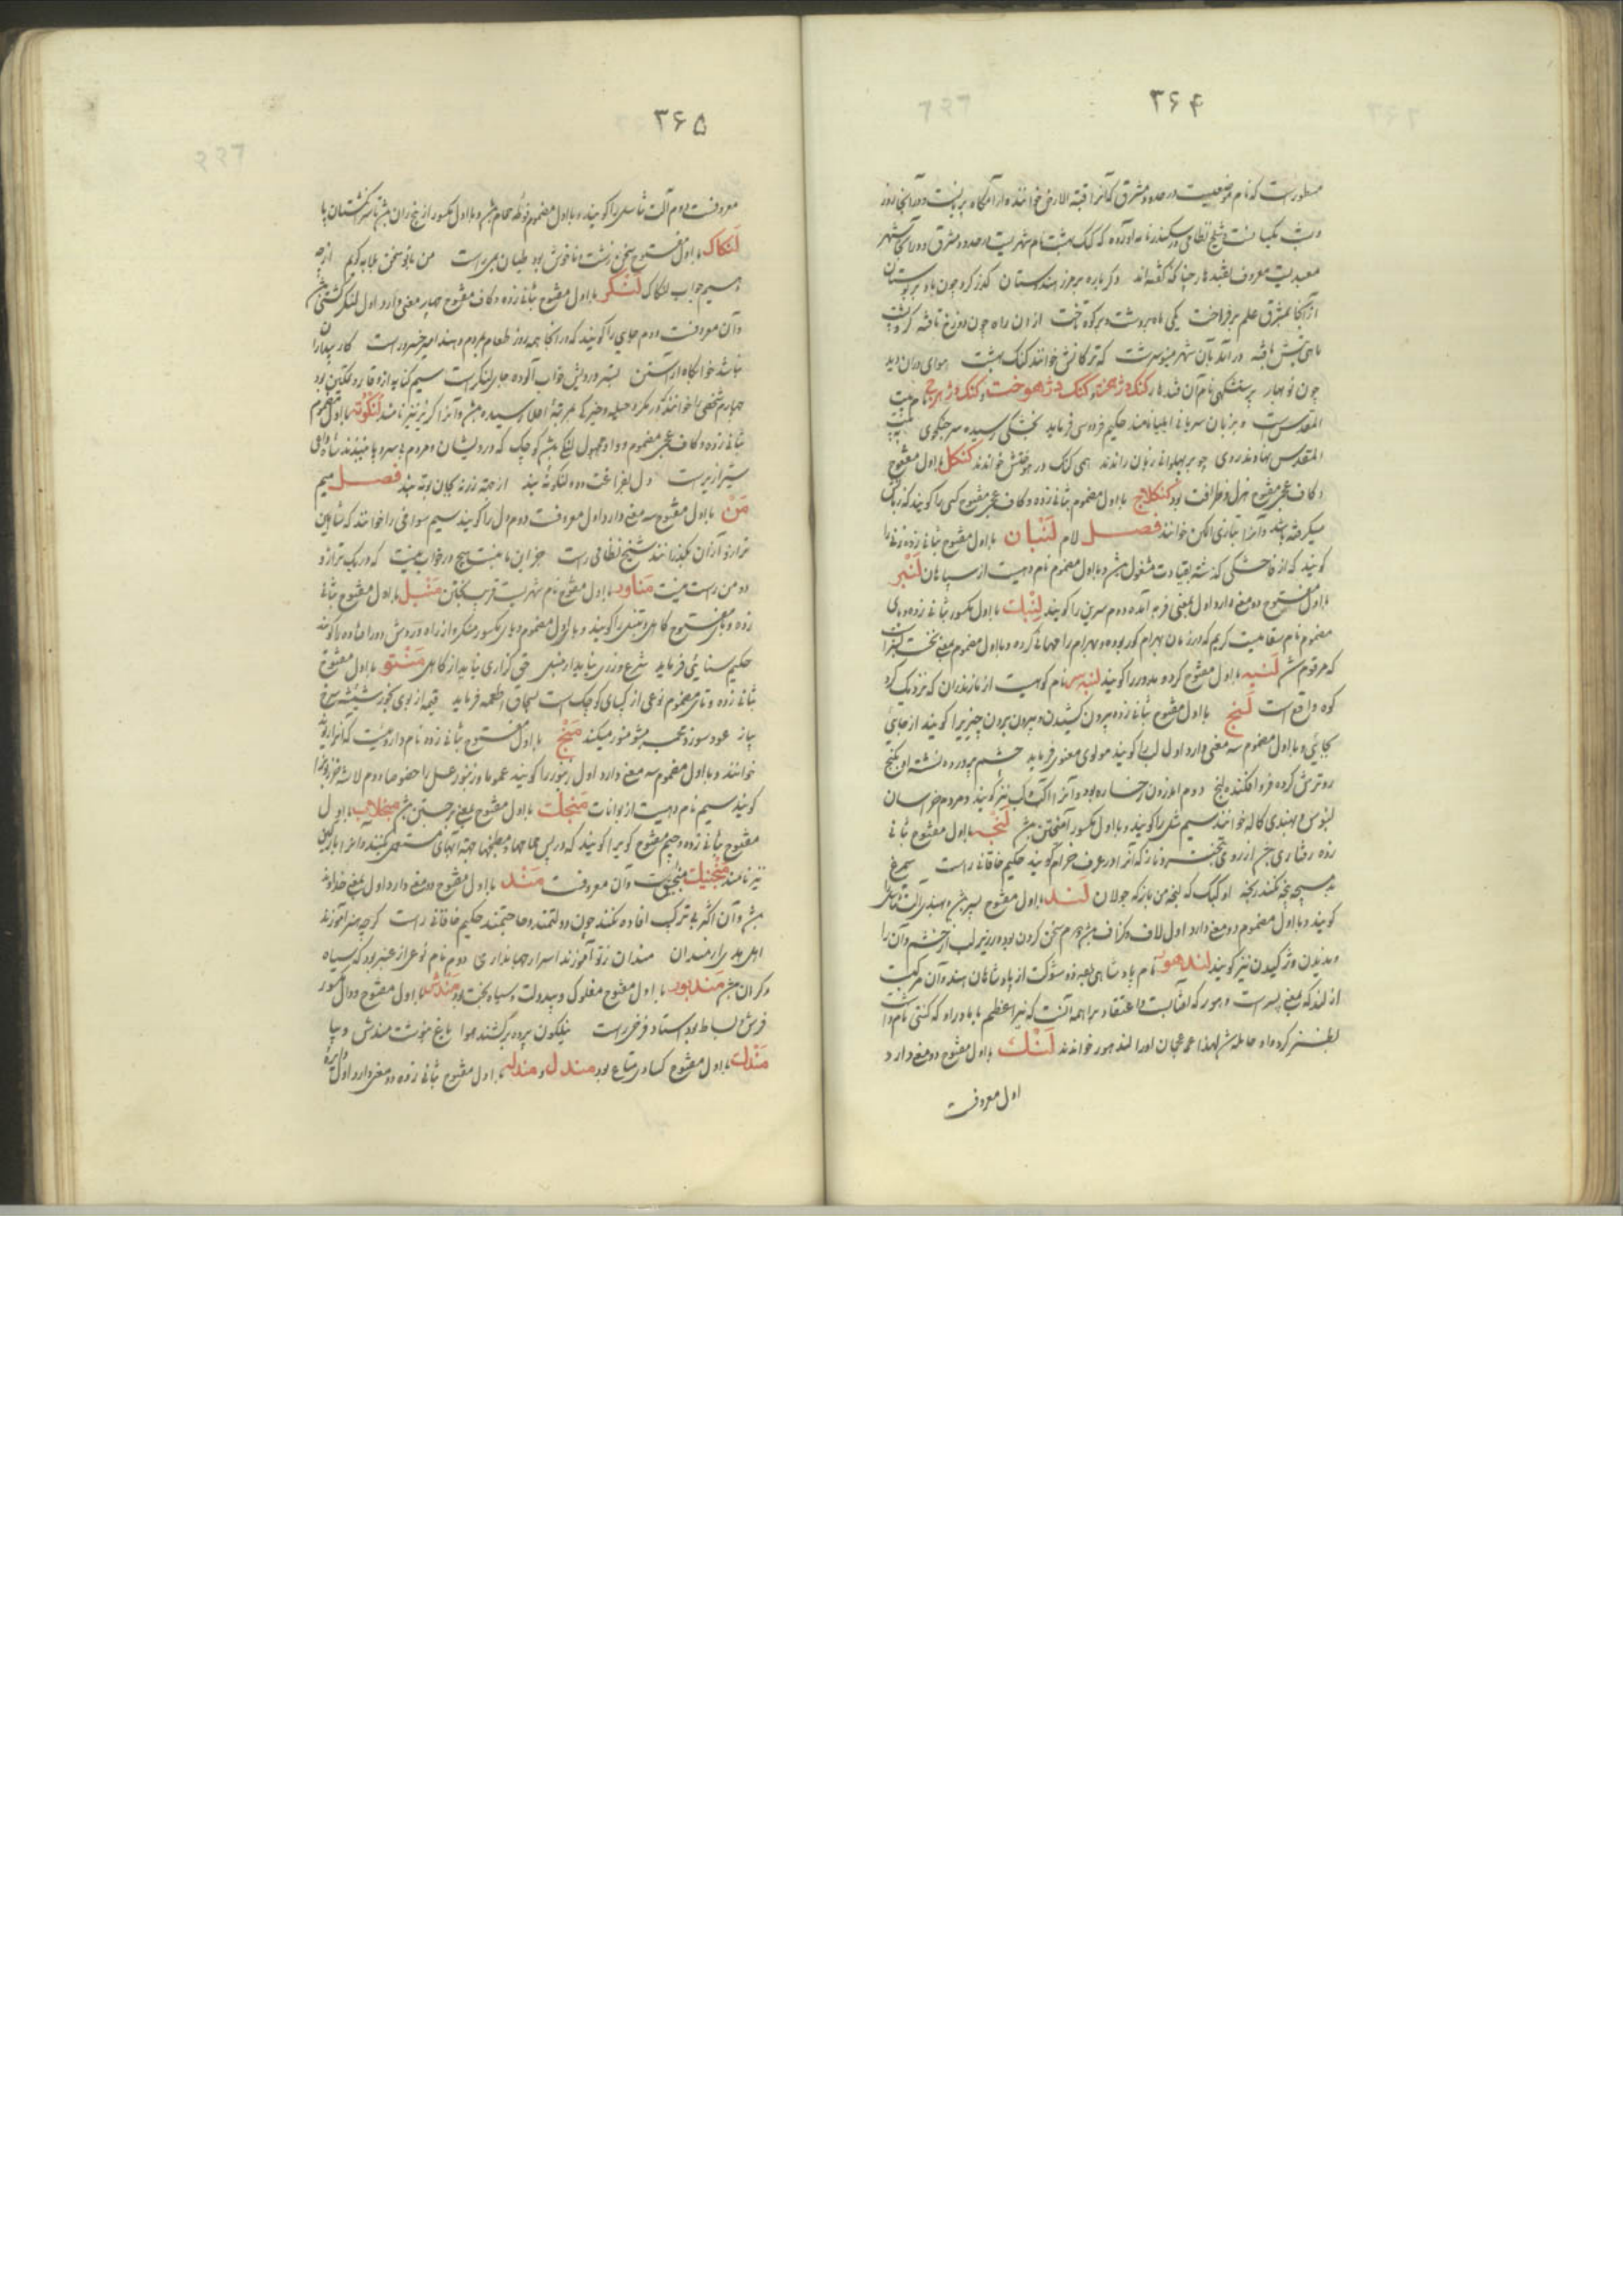 ۳۶۴
مسطورست که نام موضعیست در حدود مشرق که آنرا قبة الارض خوانند و از آرامگاه پریانست و در آنجا روز
و شب یکسانست و شیخ نظامی در سکندرنامه آورده که کنک بهشت نام شهریست در حدود مشرق و در آن شهر
معبدیست معروف بقندهار چنانکه گفته‌اند و کرباره بر مرز هندستان گذر کرد چون باد بر بوستان
از آنجا بمشرق علم برفراخت یکی ماه بر دشت و بر کوه تاخت از ان راه چون دوزخ تافته
تابش یافته در آمد بآن شهر مینوسرشت که ترکانش خوانند کنک بهشت هوای در ان دید
چون نو بهار پرستشگهی نام آن قندهار کنک دژهخت و کنک دژهوخت و کنک دژهرج نام بیت
المقدس است و بزبان سریانی ایلیا نامند حکیم فردوسی فرماید بخشکی رسیدند سر جنگجوی به بیت
المقدس نهادند روی چو بر پهلوانی زبان راندند همی کنک دژهوختش خواندند کنکل با اول مفتوح
و کاف عجمی مفتوح هزل و ظرافت بود کنکلاج با اول مضموم بثانی زده و کاف عجمی مفتوح کسی را گویند که زبانش
میگرفته باشد و آنرا بتازی الکن خوانند فصل لام لنبان با اول مفتوح بثانی زده زنی را
گویند که از فاحشگی گذشته بقیادت مشغول باشد و با اول مضموم نام دهیست از سپاهان لنبر
با اول مفتوح دو معنی دارد اول بمعنی فربه آمده دوم سرین را گویند لنبک با اول مکسور بثانی زده و بای
مضموم نام سقاییست کریم که در زمان بهرام گور بوده و بهرام را مهمانی کرده و با اول مضموم بمعنی نخست لنبران
که مرقوم شد لنبه با اول مفتوح کرد و مدور را گویند لنبه سر نام کوهیست از مازندران که نزدیک گرد
کوه واقع است لنج با اول مفتوح بثانی زده بیرون کشیدن و بیرون بردن چیزی را گویند از جای
بجایی و با اول مضموم سه معنی دارد اول لب را گویند مولوی معنوی فرماید خشم پرورده نشسته او بکنج
رو ترش کرده فرو افکنده لنج دوم اندرون رخساره بود و آنرا لب نیز گویند و مردم خراسان
لبوس و بهندی کاله خوانند سیم شل را گویند و با اول مکسور آمیختن باشد لنجه با اول مفتوح ثانی
زده رفتاری خرام از روی تبختر و ناز که آنرا در عرف خرام گویند حکیم خاقانی راست سیمرغ
به پنجه نکند رنجه او کبک که لنجه من باز که جولان لند با اول مفتوح پسر باشد و بهندی آلت تناسل را
گویند و با اول مضموم دو معنی دارد اول لاف و گزاف باشد دوم سخن کردن بود در زیر لب از خشم و آن را
دندیدن و ژکیدن نیز گویند لندهور نام پادشاهی بوده ذو شوکت از پادشاهان هند و آن مرکبست
از لند که بمعنی پسر است و هور که آفتابست و اعتقاد براهمه آنست که نیر اعظم با مادر او که کنتی نام داشت
نظر کرد و او حامله شد لهذا عجمیان او را لندهور خواندند لنک با اول مفتوح دو معنی دارد
اول معروفست
۳۶۵
معروفست دوم آلت تناسل را گویند و با اول مضموم فوطه حمام باشد و با اول مکسور از بیخ ران باشد تا سر انگشتان پا
لنکاک با اول مفتوح سخن زشت و ناخوش بود طیان راست من باتو سخن بلابه گویم از چه
دهیم جواب لنکاک لنکر با اول مفتوح بثانی زده و کاف مفتوح چهار معنی دارد اول لنکر کشتی باشد
و آن معروفست دوم جایی را گویند که در آنجا همه روز طعام بمردم دهند امیر خسرو راست کار
نباشد خوابگاه آراستن بستر درویش خواب آلوده جا بر لنکر است سیم کنایه از وقار و تمکین بود
چهارم شخصی را خوانند که در مکر و حیله و خیرگی بمرتبه اعلا رسیده باشد و آنرا کربز نیز نامند لنکوته با اول مضموم
بثانی زده و کاف عجمی مضموم و واو مجهول لنکی باشد کوچک که درویشان و مردم بی سر و پا بندند شاه داعی
شیرازی راست دل بفراغت ده و لنکوته بند از جهت زر نه بجان بوته بند فصل میم
من با اول مفتوح سه معنی دارد اول معروفست دوم دل را گویند سیم سوراخی را خوانند که شاهین
ترازو از ان بگذرانند شیخ نظامی راست جز این ما نیست هیچ در خواب نیست که در یک ترازو
دو من راست نیست مناور با اول مفتوح نام شهریست قریب بختن منبل با اول مفتوح بثانی
زده و بای مفتوح کاهل و تنبل را گویند و با اول مضموم و بای مکسور منکر و از راه و روش دور افتاده را گویند
حکیم سنایی فرماید شرع ورزی نباید از منبل حق گزاری نیاید از کاهل منتو با اول مفتوح
بثانی زده و تای مضموم نوعی از کیپای کوچک است بسحاق اطعمه فرماید قیمه از بوی بخور شیشه سرخ
پیاز عود سوز و تحت منتو منور میکند منج با اول مفتوح بثانی زده نام داروییست که آنرا
خوانند و با اول مضموم سه معنی دارد اول زنبور را گویند عموما و زنبور عسل را خصوصا دوم لاشه خر بود
گویند سیم نام دهیست از بوانات منجک با اول مفتوح بمعنی برجستن باشد منجلاب با اول
مفتوح بثانی زده و جیم مفتوح گوی را گویند که در پس حمامها و مطبخها بجهت آبهای مستعمل بکنند و آنرا پارگین
نیز نامند منجنیک منجنیق است و آن معروفست مند با اول مفتوح دو معنی دارد اول بمعنی خداوند
باشد و آن اکثر بی ترکیب افاده نکند چون دولتمند و حاجتمند حکیم خاقانی راست گر چه هنر آموزند
اهل هنر از مندان مندان ز تو آموزند اسرار جهانداری دوم نام نوعی از عنبر بود که سیاه
و گران باشد مندبور با اول مفتوح مفلوک و بیدولت و سیاه بخت بود مندش با اول مفتوح و دال مکسور
فرش و بساط بود استاد فرخی راست نیلگون پرده برکشند هوا باغ بنوشت مندش دیبا
مندک با اول مفتوح کسادی متاع بود مندل و مندله با اول مفتوح بثانی زده دو معنی دارد اول دایره